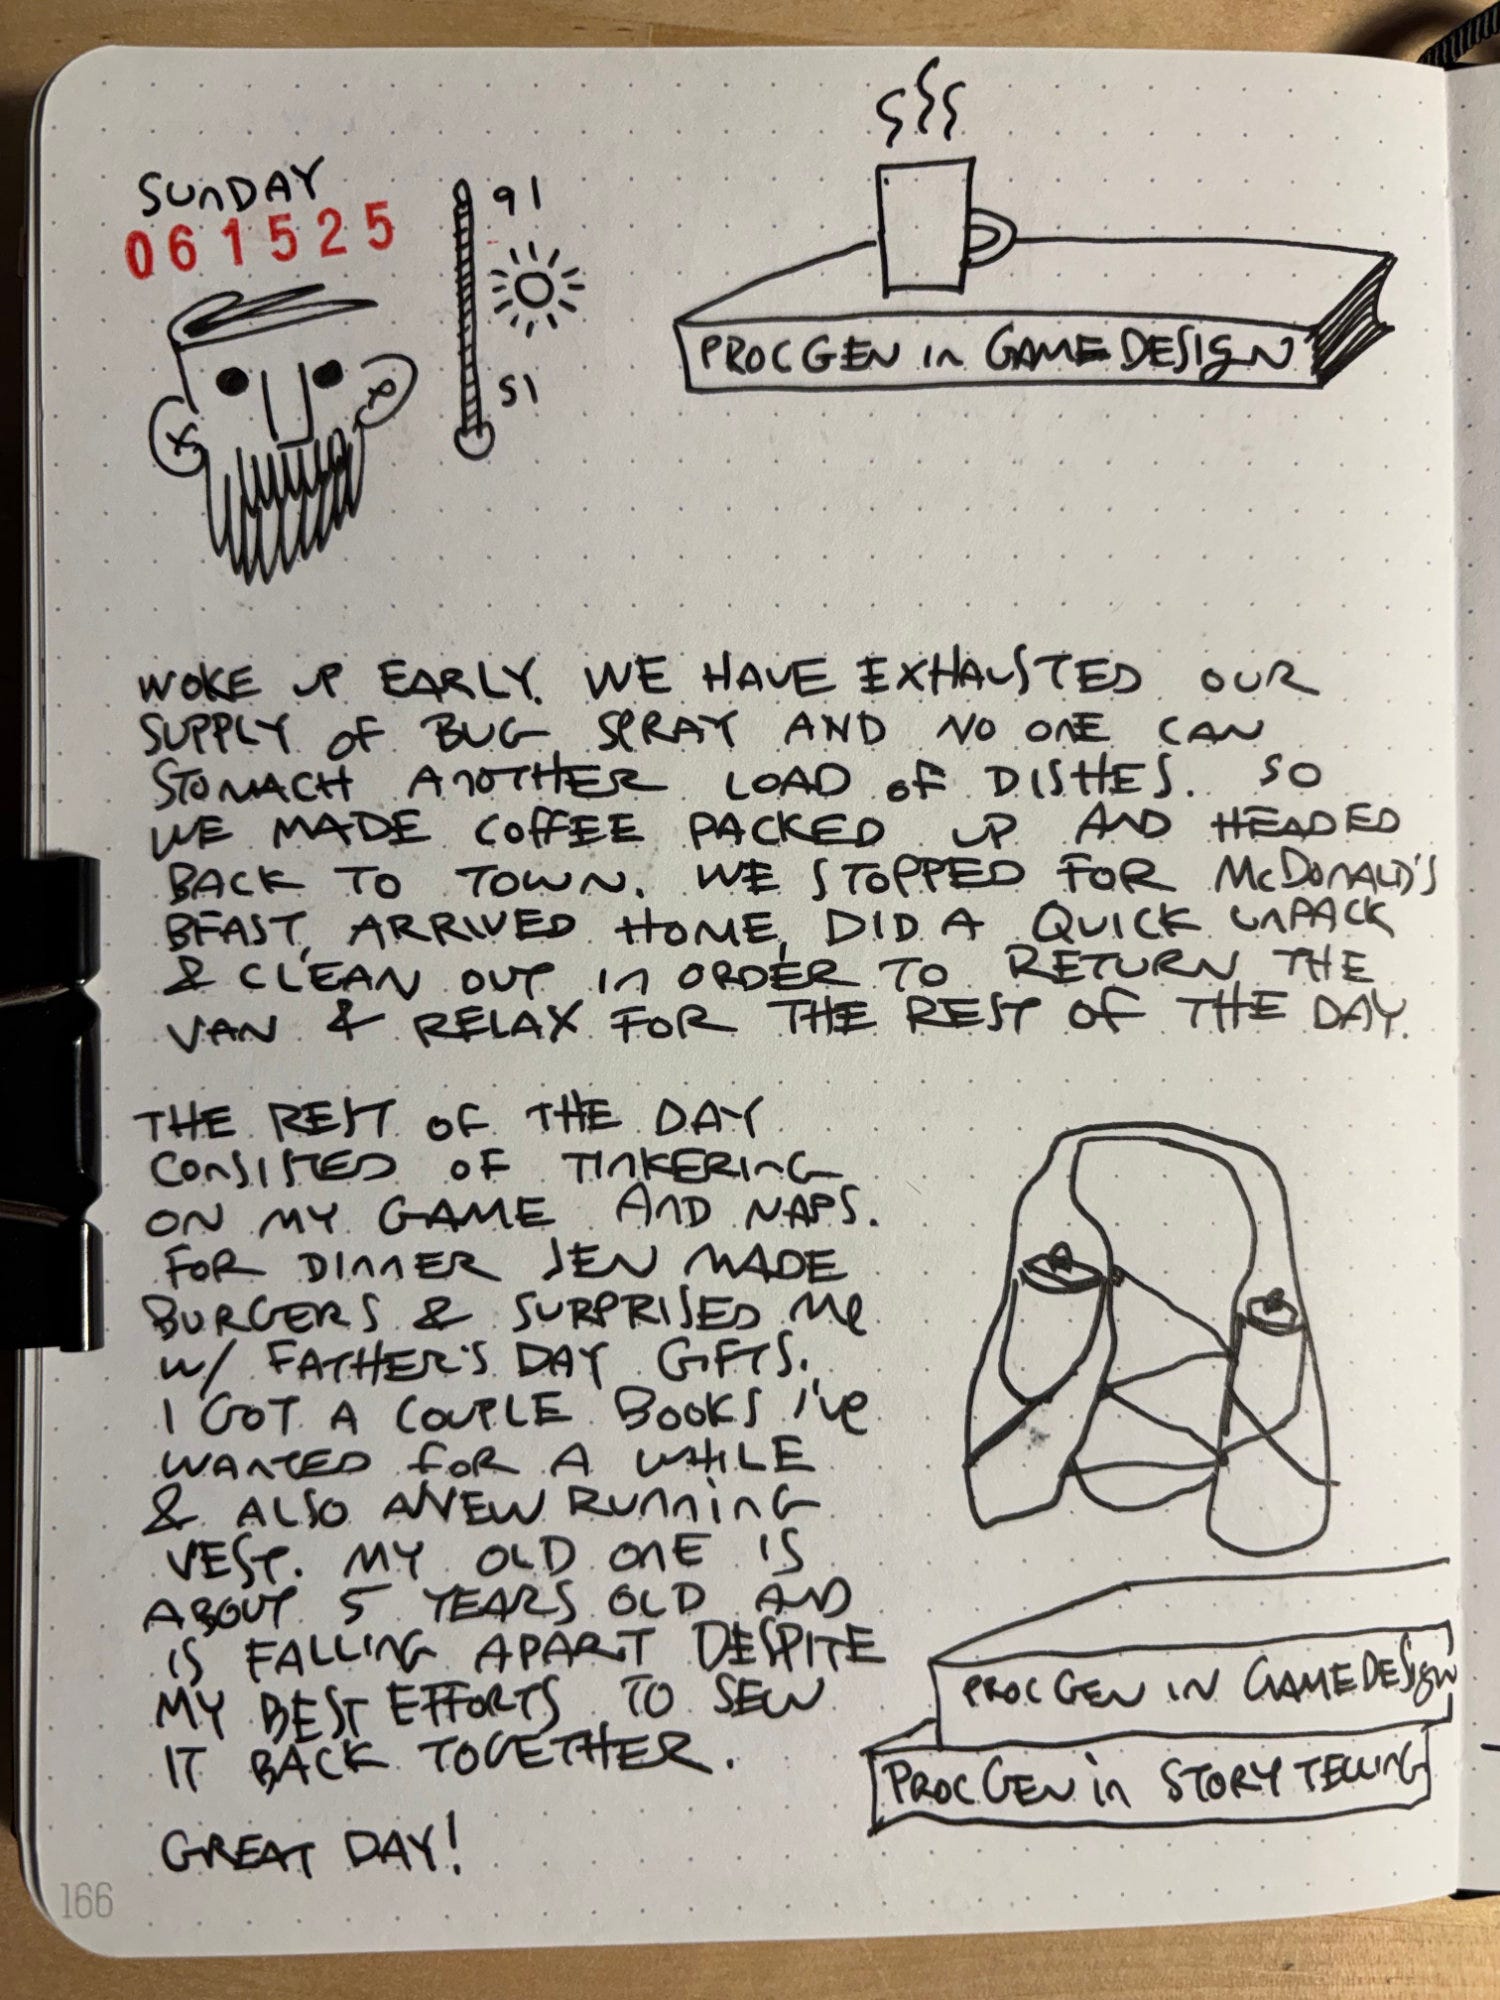 SUNDAY
061525
91
51
PROCGEN in GAME DESIGN
WOKE UP EARLY. WE HAVE EXHAUSTED OUR
SUPPLY OF BUG SPRAY AND NO ONE CAN
STOMACH ANOTHER LOAD OF DISHES. SO
WE MADE COFFEE PACKED UP AND HEADED
BACK TO TOWN. WE STOPPED FOR McDONALD'S
BFAST, ARRIVED HOME, DID A QUICK UNPACK
& CLEAN OUT IN ORDER TO RETURN THE
VAN & RELAX FOR THE REST OF THE DAY.
THE REST OF THE DAY
CONSISTED OF TINKERING
ON MY GAME AND NAPS.
FOR DINNER JEN MADE
BURGERS & SURPRISED Me
W/ FATHER'S DAY GIFTS.
I GOT A COUPLE BOOKS I've
WANTED FOR A WHILE
& ALSO A NEW RUNNING
VEST. MY OLD ONE IS
ABOUT 5 YEARS OLD AND
IS FALLING APART DESPITE
MY BEST EFFORTS TO SEW
IT BACK TOGETHER.
GREAT DAY!
PROC GEN IN GAME DESIGN
PROC GEN in STORY TELLING
166